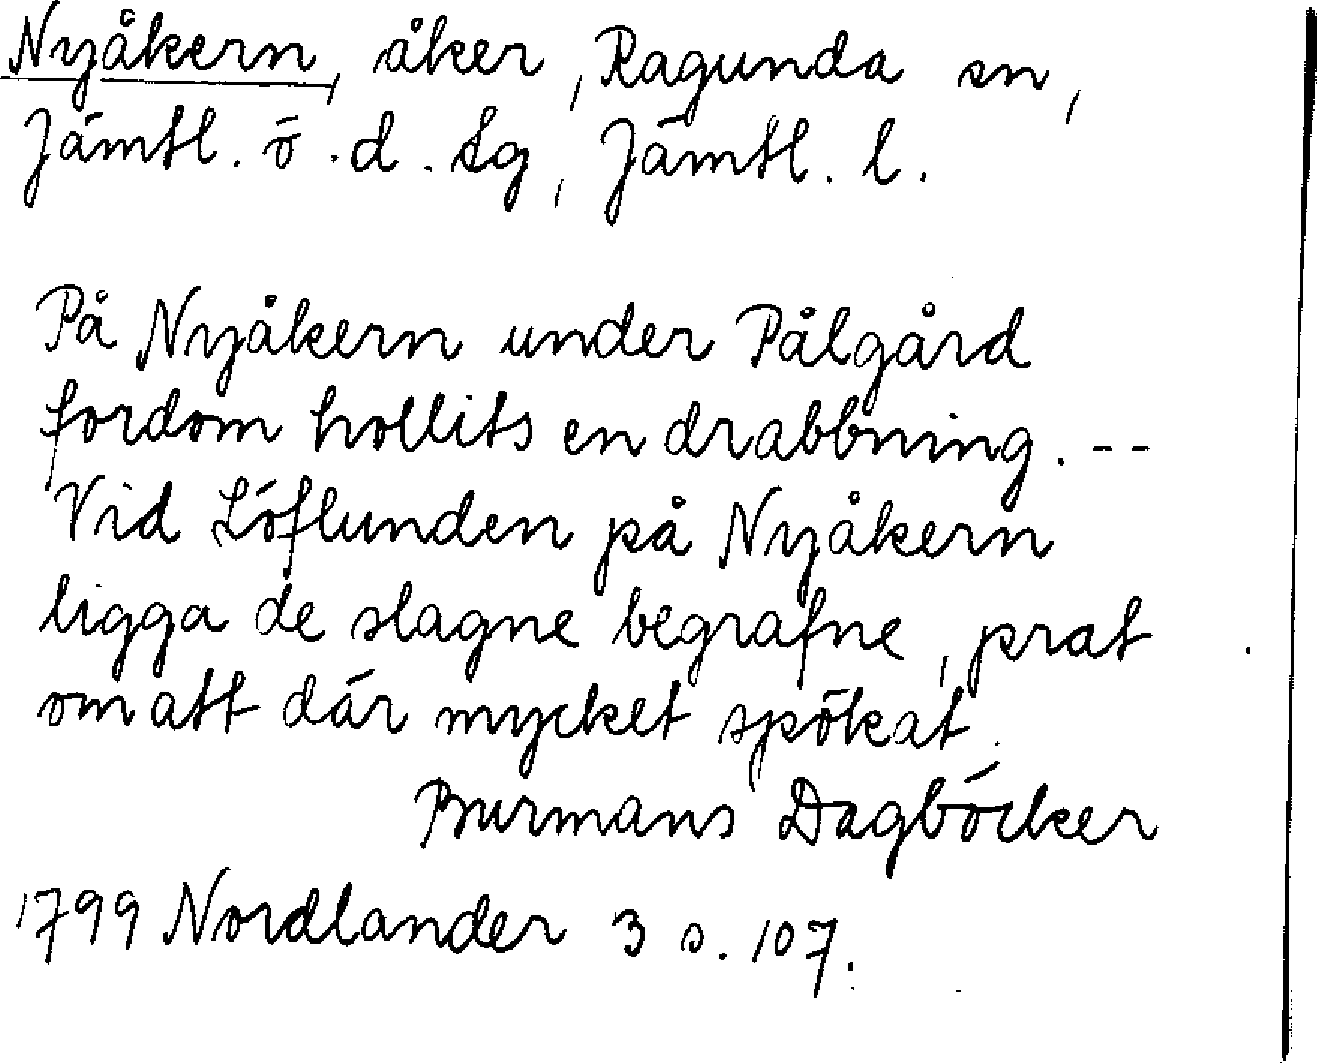 Nyåkern, åker, Ragunda sn,
Jämtl. ö. d. sg, Jämtl. l.
På Nyåkern under Pålgård
fordom hollits en drabbning. --
Vid Löflunden på Nyåkern
ligga de slagne begrafne, prat
om att där mycket spökat.
Burmans Dagböcker
1799 Nordlander 3 s. 107.